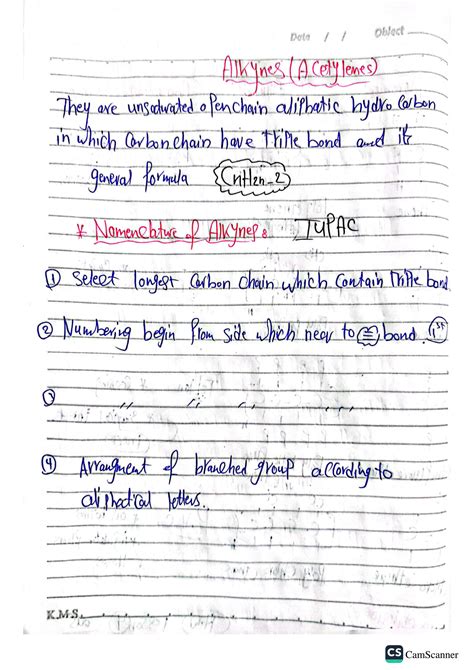 Date / / Object
Alkynes (Acetylenes)
They are unsaturated open chain aliphatic hydro Carbon
in which Carbon chain have triple bond and it's
general formula CnH2n-2
* Nomenclature of Alkynes: IUPAC
① Select longest Carbon Chain which Contain triple bond
② Numbering begin from side which near to ≡ bond. 1st
③ ,, ,, ,, ,,
④ Arrangment of branched group according to
aliphatical letters.
K.M.S.
CS CamScanner